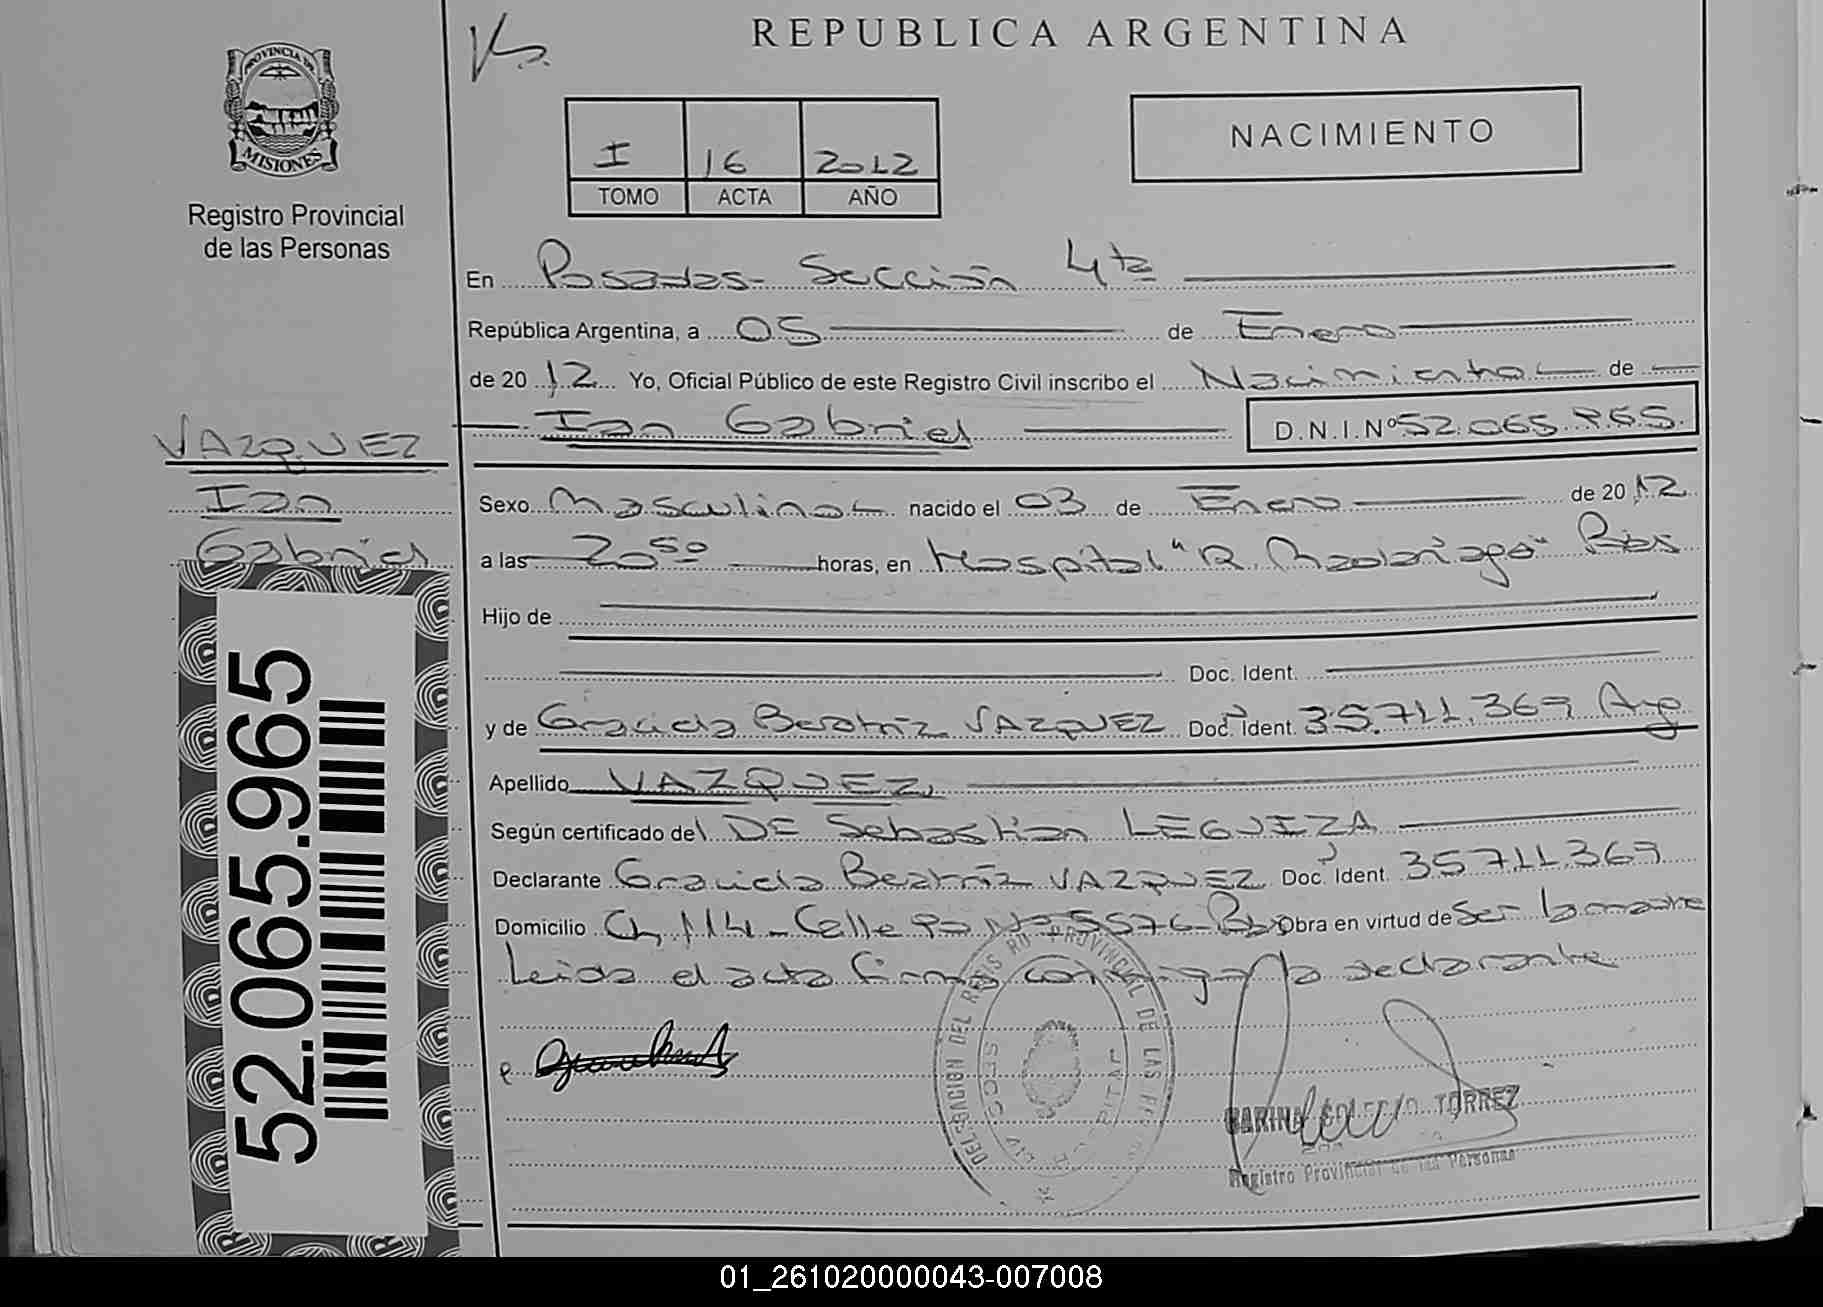 REPUBLICA ARGENTINA
PROVINCIA DE
MISIONES
Registro Provincial
de las Personas
I 16 2012
TOMO ACTA AÑO
NACIMIENTO
En Posadas - Sección 4ta
República Argentina, a 05 de Enero
de 2012 Yo, Oficial Público de este Registro Civil inscribo el Nacimiento de
Ian Gabriel D.N.I.Nº 52.065.965.
VAZQUEZ
Ian
Gabriel
Sexo Masculino nacido el 03 de Enero de 2012
a las 20 50 horas, en Hospital "R. Madariaga" Pdas
Hijo de
Doc. Ident.
y de Graciela Beatriz VAZQUEZ Doc. Ident. 35.711.369 Arg
Apellido VAZQUEZ
Según certificado del DE Sebastian LEGUIZA
Declarante Graciela Beatriz VAZQUEZ Doc. Ident. 35711369
Domicilio Ch 114 - Calle Nº 5576 - Obra en virtud de Ser la madre
Leida el acta firma conmigo la declarante
DELEGACION DEL REGISTRO PROVINCIAL DE LAS
TORREZ
Registro Provincial de las Personas
52.065.965
01_261020000043-007008